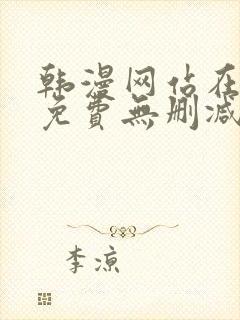 韩漫网站在
免費無删减
李凉